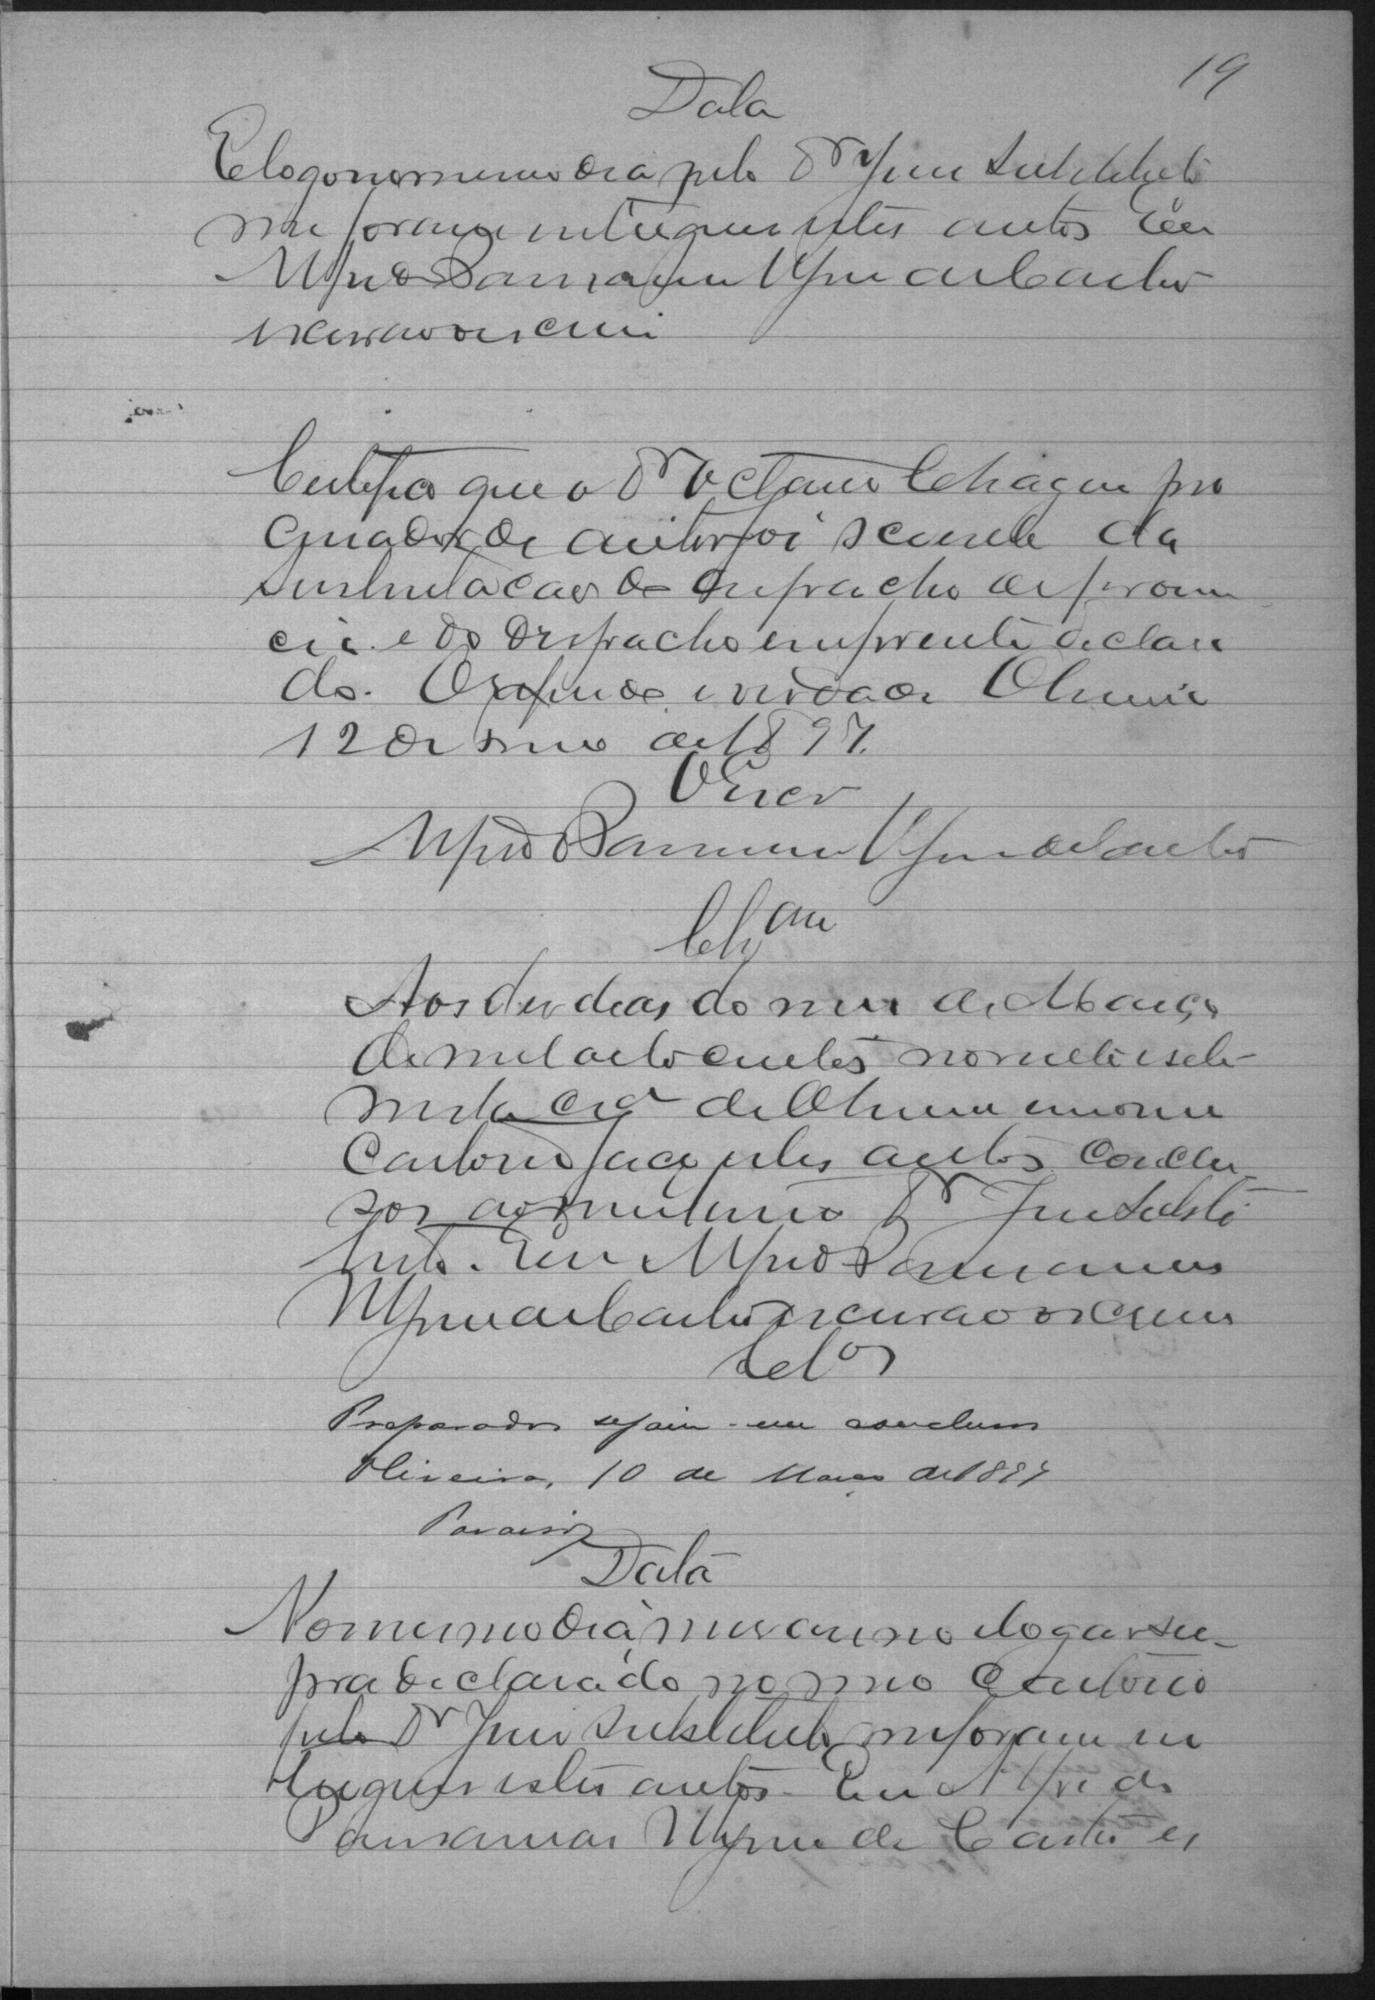 19
Data
E logo no mesmo dia pelo Dr Juiz Substituto
me foram entregues estes autos Eeu
Alfredo
escrivão escrevi
Certifico que o Dr Octavio Chagas pro
curador do autor foi sciente da
do despacho de pronun
cia e do despacho em frente declara
do. O referido é verdade Oliveira
12 de março de 1897.
O Escr
Alfredo
Clsam
Aos dez dias do mez de Março
de mil oito centos noventa e sete
nesta cide de Oliveira em meu
Cartorio faço estes autos conclu
sos ao meritissimo Dr Juiz Substi
tuto. Eeu Alfredo
escrivão o escrevi
Clos
Preparados sejam-me conclusos
Oliveira, 10 de Março de 1897
Paraiso
Data
No mesmo dia, mez anno e logar su-
pra declarado no meo Cartorio
pelo Dr Juiz Substituto me foram en
tregues estes autos. Eeu Alfredo
de Castro es